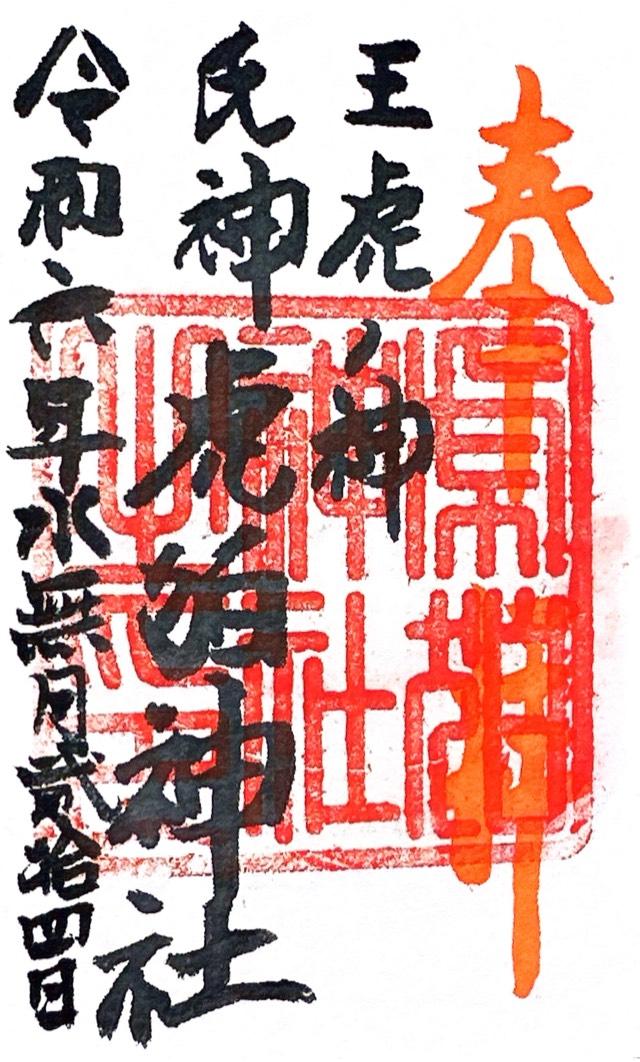 奉拝
王虎ノ神
氏神 虎狛神社
令和六年水無月貳拾四日
虎狛
神社
之印